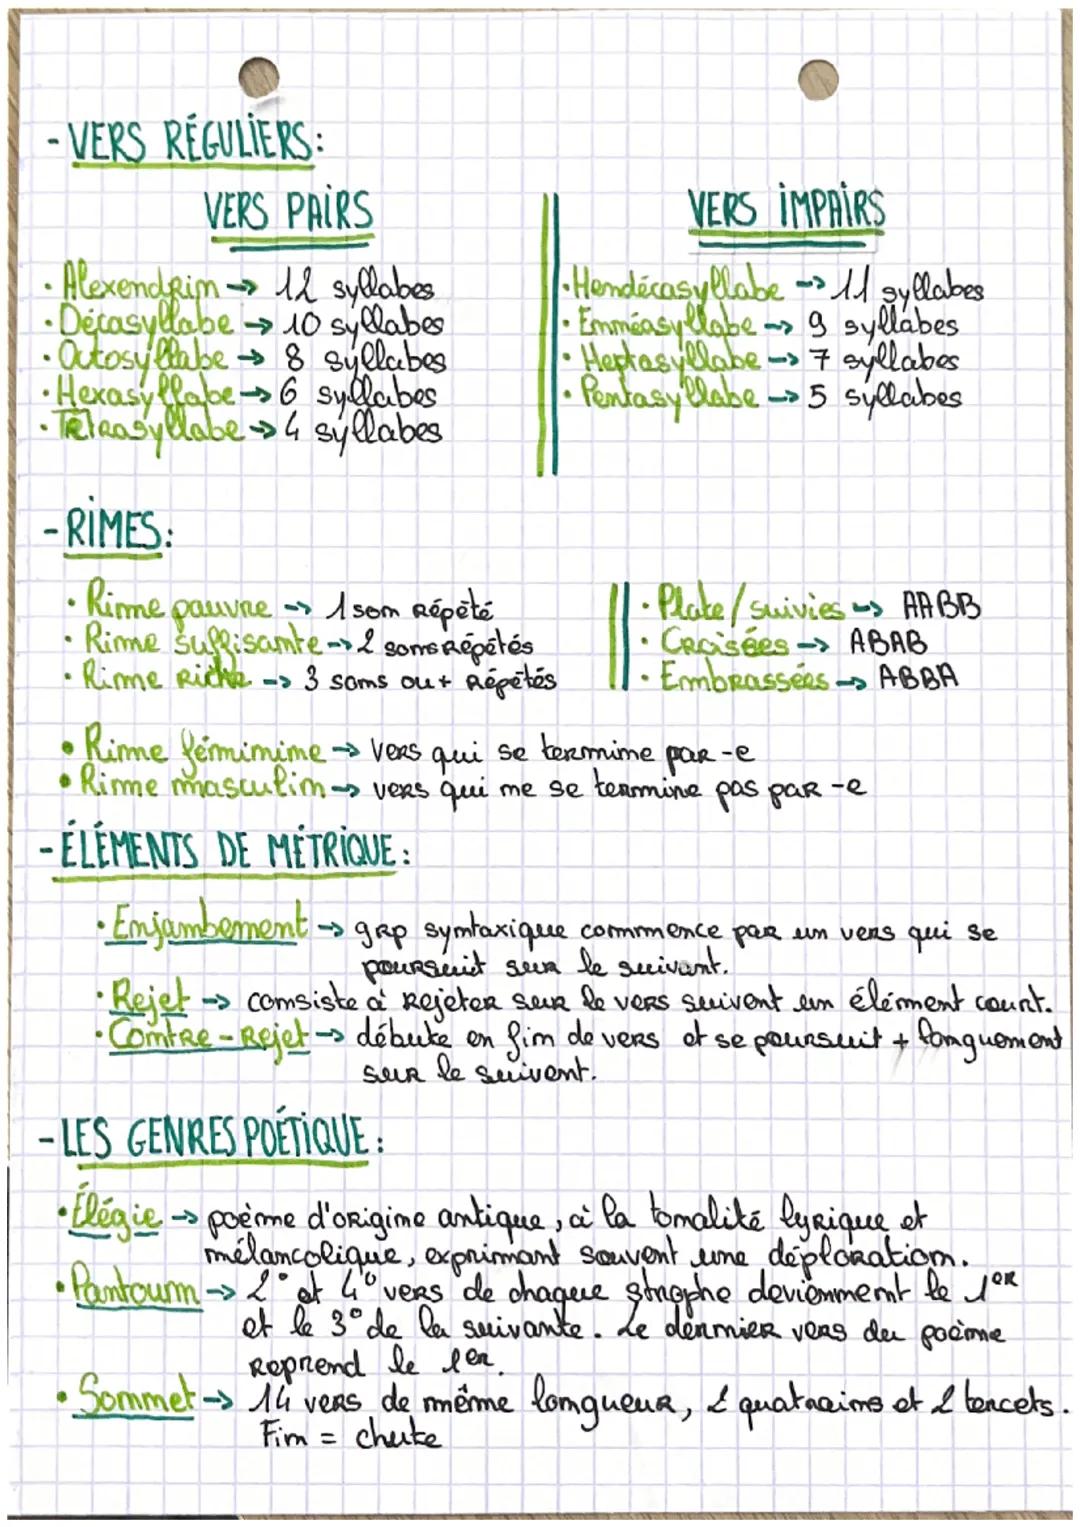 - VERS RÉGULIERS:
VERS PAIRS
· Alexendrin → 12 syllabes
· Décasyllabe → 10 syllabes
· Octosyllabe → 8 syllabes
· Hexasyllabe → 6 syllabes
· Tétrasyllabe → 4 syllabes
VERS IMPAIRS
· Hendécasyllabe → 11 syllabes
· Ennéasyllabe → 9 syllabes
· Heptasyllabe → 7 syllabes
· Pentasyllabe → 5 syllabes
- RIMES:
· Rime pauvre → 1 son répété
· Rime suffisante → 2 sons répétés
· Rime riche → 3 sons ou + répétés
· Plate / suivies → AABB
· Croisées → ABAB
· Embrassées → ABBA
• Rime féminine → vers qui se termine par -e
• Rime masculin → vers qui ne se termine pas par -e
- ÉLÉMENTS DE MÉTRIQUE:
· Enjambement → grp syntaxique commence par un vers qui se
poursuit sur le suivant.
· Rejet → consiste à rejeter sur le vers suivent un élément court.
· Contre-rejet → débute en fin de vers et se poursuit + longuement
sur le suivent.
- LES GENRES POÉTIQUE:
· Élégie → poème d'origine antique, à la tonalité lyrique et
mélancolique, exprimant souvent une déploration.
· Pantoum → 2° et 4° vers de chaque strophe deviennent le 1er
et le 3° de la suivante. Le dernier vers du poème
reprend le 1er.
· Sonnet → 14 vers de même longueur, 2 quatrains et 2 tercets.
Fin = chute